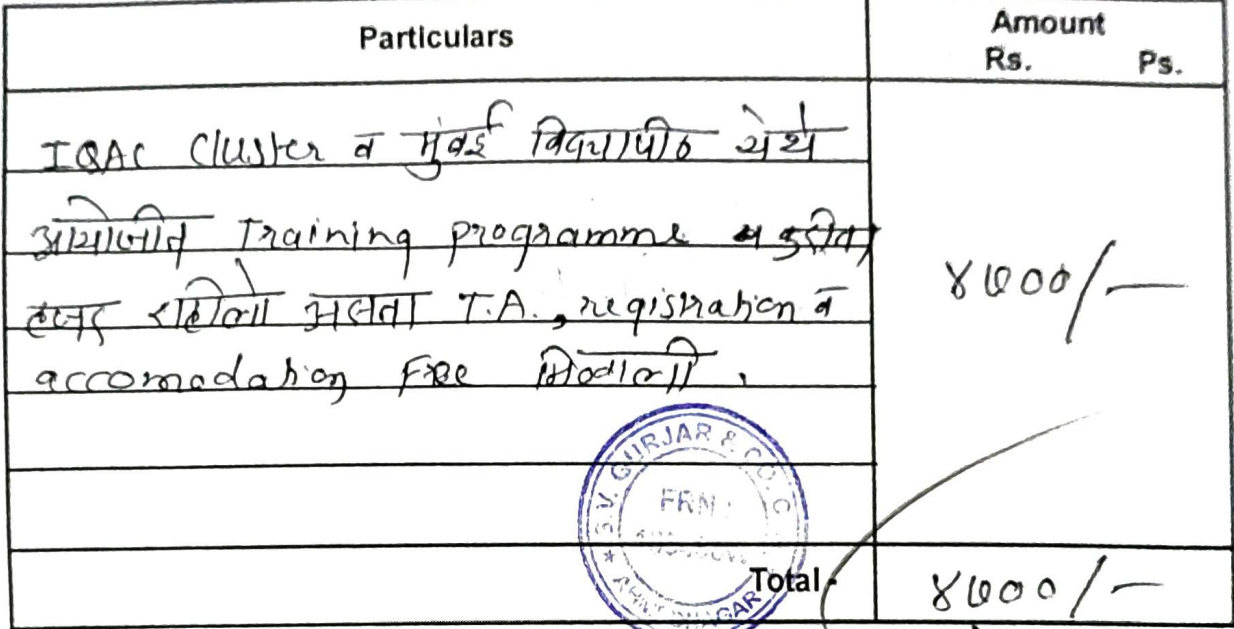 Particulars
Amount
Rs. Ps.
IQAC Cluster व मुंबई विद्यापीठ येथे
आयोजीत Training programme करीता
हजर राहिलो असता T.A., registration व
accomadation Fee मिळाली.
४७००/-
S.V. GURJAR & CO. C
FRN
Total
४७००/-